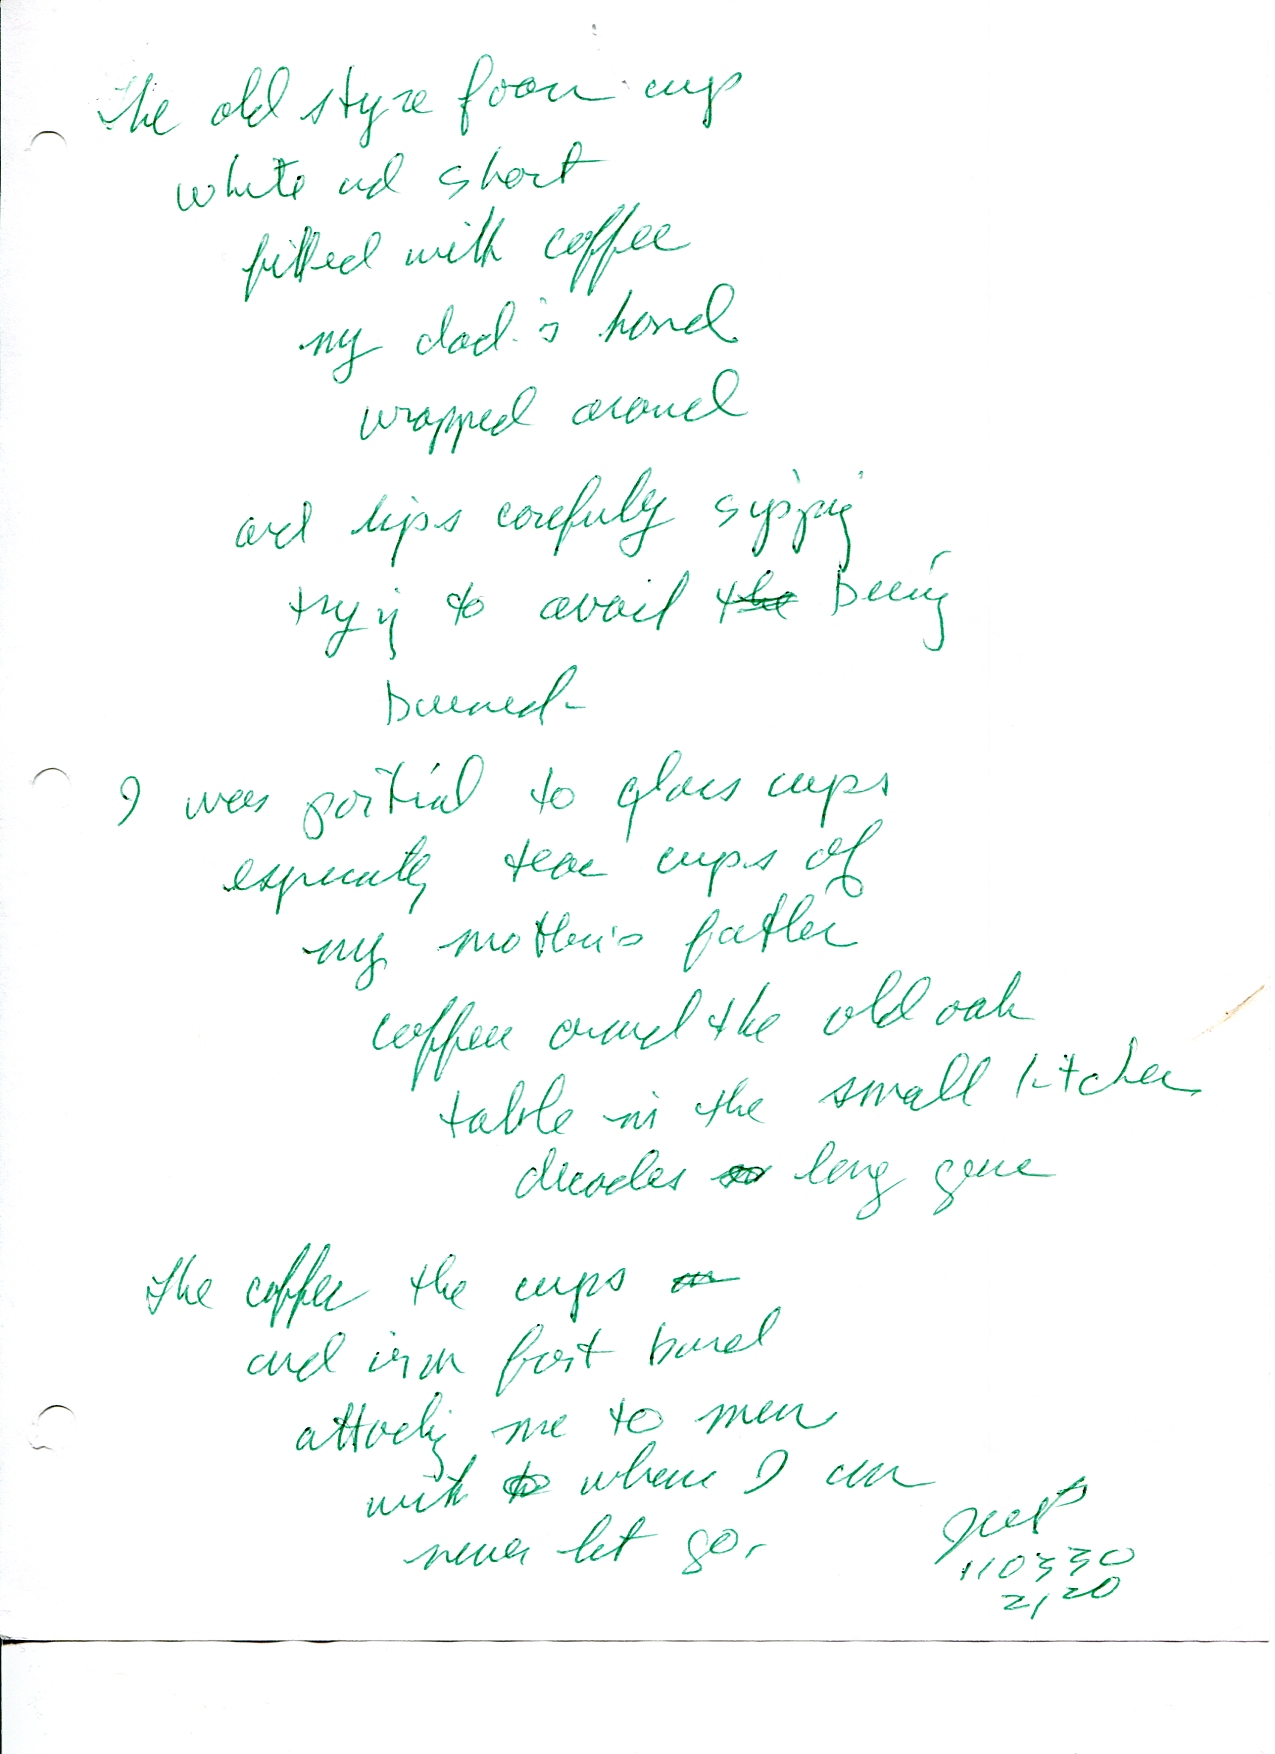 The old styro foam cup
white and short
filled with coffee
my dad's hand
wrapped around
and lips carefully sipping
trying to avoid the being
burned
I was partial to glass cups
especially tea cups of
my mother's father
coffee around the old oak
table in the small kitchen
decades so long gone
The coffee the cups
and iron fast bond
attaching me to men
with to whom I can
never let go.
110330
2120